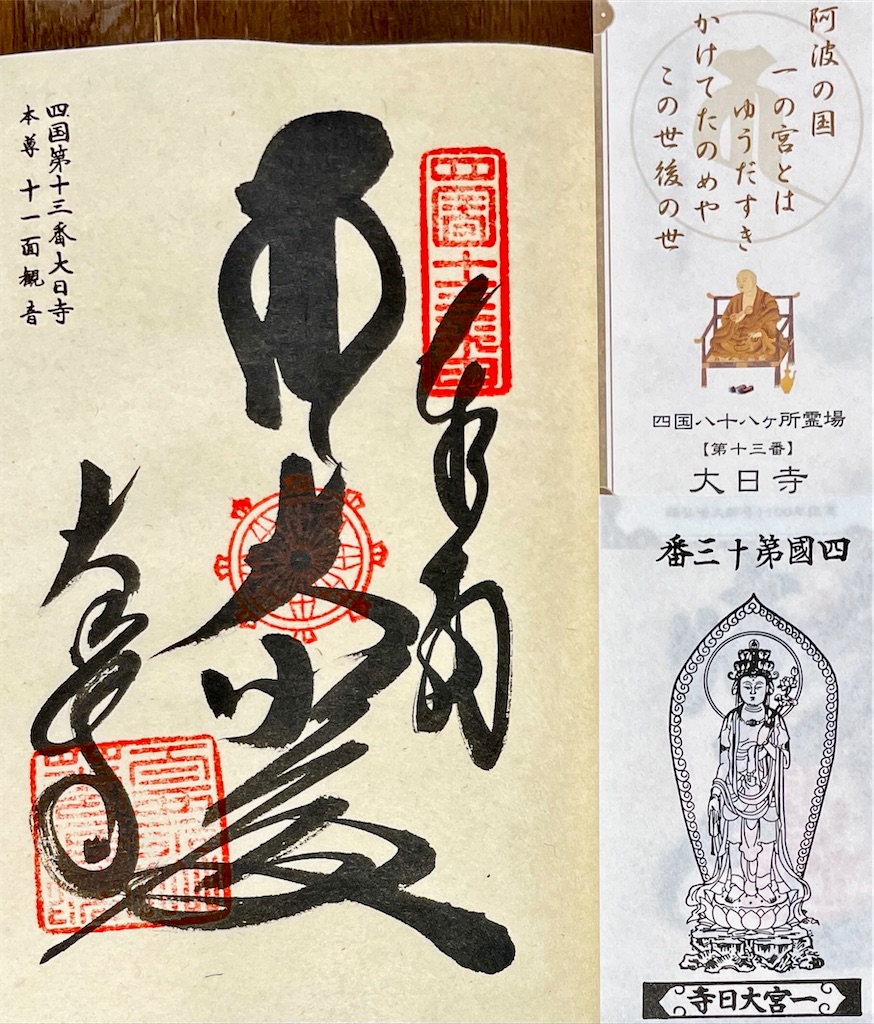 四国第十三番大日寺
本尊 十一面観音
四國十三番
奉納
大日寺
阿波の国
一の宮とは
ゆうだすき
かけてたのめや
この世後の世
四国八十八ヶ所霊場
【第十三番】
大日寺
四國第十三番
一宮大日寺